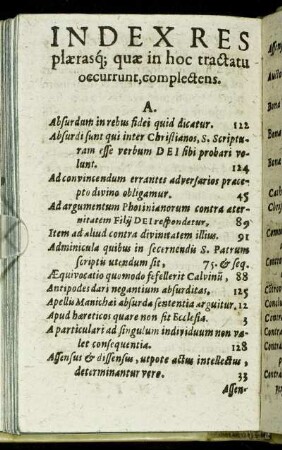 INDEX RES
plærasq; quæ in hoc tractatu
occurrunt, complectens.
A.
Absurdum in rebus fidei quid dicatur. 122
Absurdi sunt qui inter Christianos, S. Scriptu-
ram esse verbum DEI sibi probari vo-
lunt. 124
Ad convincendum errantes adversarios præce-
pto divino obligamur. 45
Ad argumentum Photinianorum contra æter-
nitatem Filij DEI respondetur. 89
Item ad aliud contra divinitatem illius. 91
Adminicula quibus in secernendis S. Patrum
scriptis utendum sit, 75. & seq.
Æquivocatio quomodo fefellerit Calvinū, 88
Antipodes dari negantium absurditas. 125
Apellis Manichæi absurda sententia arguitur. 12
Apud hæreticos quare non sit Ecclesia. 3
A particulari ad singulum individuum non va-
let consequentia. 128
Assensus & dissensus, utpote actus intellectus,
determinantur vero. 33
Assen-